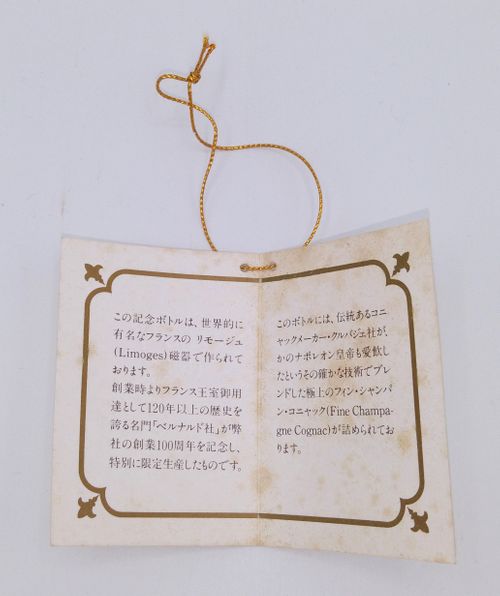 この記念ボトルは、世界的に
有名なフランスの リモージュ
(Limoges)磁器で作られて
おります。
創業時よりフランス王室御用
達として120年以上の歴史を
誇る名門「ベルナルド社」が弊
社の創業100周年を記念し、
特別に限定生産したものです。
このボトルには、伝統あるコニ
ャックメーカー・クルバジェ社が、
かのナポレオン皇帝も愛飲し
たというその確かな技術でブレ
ンドした極上のフィン・シャンパ
ン・コニャック(Fine Champa-
gne Cognac)が詰められてお
ります。